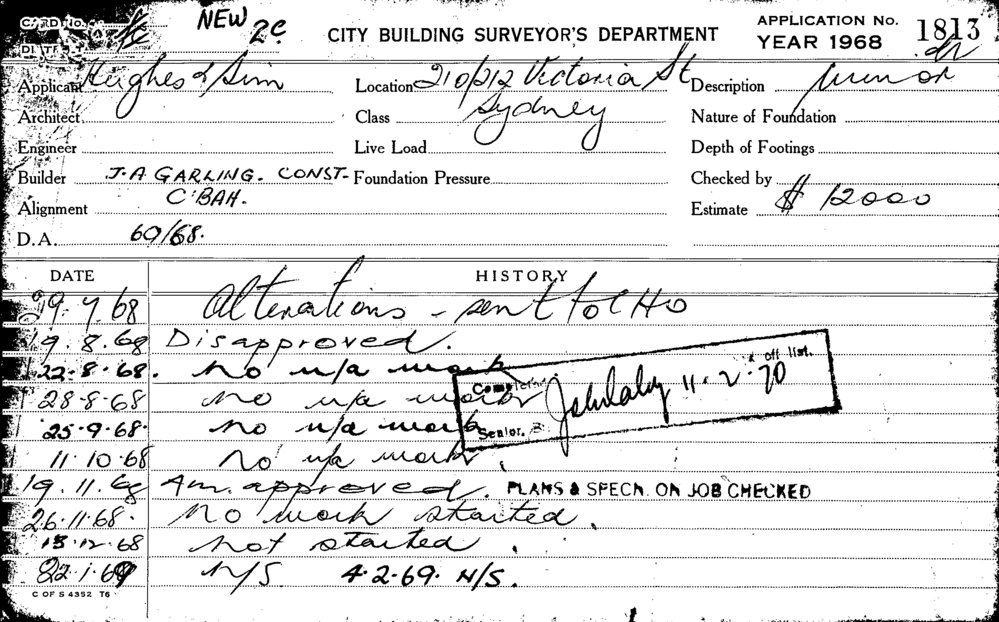 CARD No.
NEW 2C
CITY BUILDING SURVEYOR'S DEPARTMENT
APPLICATION No. 1813
YEAR 1968
DISTRICT
Applicant Hughes & Sim
Location 210/212 Victoria St Sydney
Description minor
Architect
Class
Nature of Foundation
Engineer
Live Load
Depth of Footings
Builder J.A GARLING. CONST.
Foundation Pressure
Checked by
Alignment C'BAH.
Estimate $ 12000
D.A. 60/68.
DATE HISTORY
19.7.68 Alterations - sent to C H O
19.8.68 Disapproved.
22.8.68. No u/a work
28-8-68 no u/a work
25.9.68. no u/a work
11.10.68 No u/a work.
19.11.68 Am. approved. PLANS & SPECN. ON JOB CHECKED
26.11.68. No work started.
13.12.68 not started.
22.1.69 N/S. 4.2.69. N/S.
Completed & off list.
11.2.70
Senior. B
C OF S 4352 T6